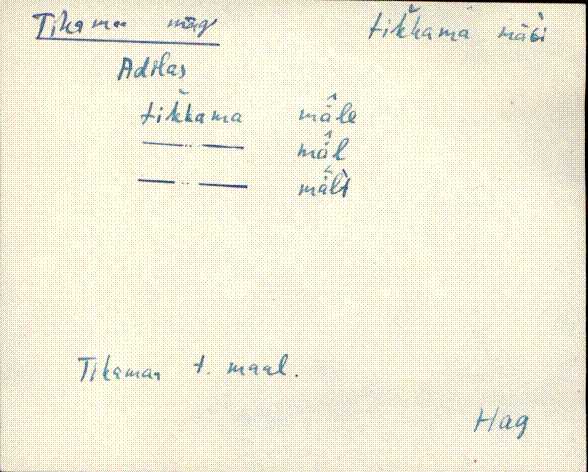 Tikaman mäg tik̆kama mäǵi
Adilas
tik̆kama mä̂le
—— ·· —— mä̂l
—— ·· —— mä̂lt
Tikaman t. maal.
Hag